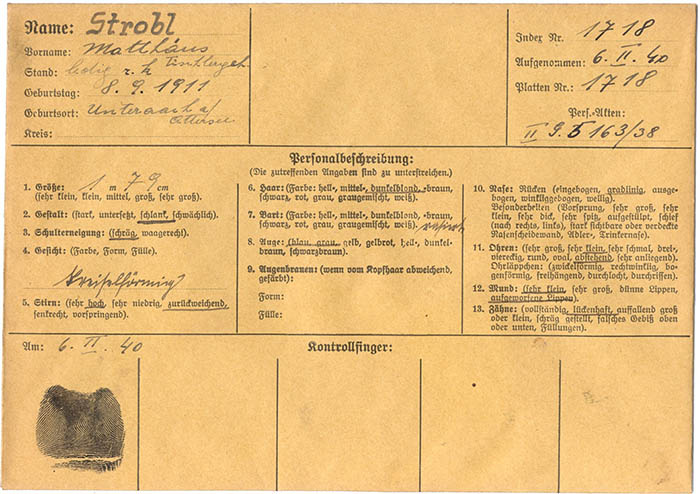 Name: Strobl
Vorname: Matthäus
Stand: ledig r. k. Tischlergeh.
Geburtstag: 8. 9. 1911
Geburtsort: Unterach a/
Attersee
Kreis:
Index Nr. 1718
Aufgenommen: 6. II. 40
Platten Nr. 1718
Pers.-Akten:
II 163/38
Personalbeschreibung:
(Die zutreffenden Angaben sind zu unterstreichen).
1. Größe: 1 m 79 cm
(sehr klein, klein, mittel, groß, sehr groß).
2. Gestalt: (stark, untersetzt, schlank, schwächlich).
3. Schulterneigung: (schräg, waagerecht).
4. Gesicht: (Farbe, Form, Fülle).
kreiselförmig
5. Stirn: (sehr hoch, sehr niedrig, zurückweichend,
senkrecht, vorspringend).
6. Haar: (Farbe: hell-, mittel-, dunkelblond, -braun,
schwarz, rot, grau, graugemischt, weiß).
7. Bart: (Farbe: hell-, mittel-, dunkelblond, -braun,
schwarz, rot, grau, graugemischt, weiß). rasiert
8. Auge: (blau, grau, gelb, gelbrot, hell-, dunkel-
braun, schwarzbraun).
9. Augenbrauen: (wenn vom Kopfhaar abweichend,
gefärbt):
Form:
Fülle:
10. Nase: Rücken (eingebogen, gradlinig, ausge-
bogen, winkliggebogen, wellig).
Besonderheiten (Vorsprung, sehr groß, sehr
klein, sehr dick, sehr spitz, aufgestülpt, schief
(nach rechts, links), stark sichtbare oder verdeckte
Nasenscheidewand, Adler-, Trinkernase).
11. Ohren: (sehr groß, sehr klein, sehr schmal, drei-,
viereckig, rund, oval, abstehend, sehr anliegend).
Ohrläppchen: (zwickelförmig, rechtwinklig, bo-
genförmig, freihängend, durchlocht, durchrissen).
12. Mund: (sehr klein, sehr groß, dünne Lippen,
aufgeworfene Lippen).
13. Zähne: (vollständig, lückenhaft, auffallend groß
oder klein, schräg gestellt, falsches Gebiß oben
oder unten, Füllungen).
Am: 6. II. 40
Kontrollfinger: